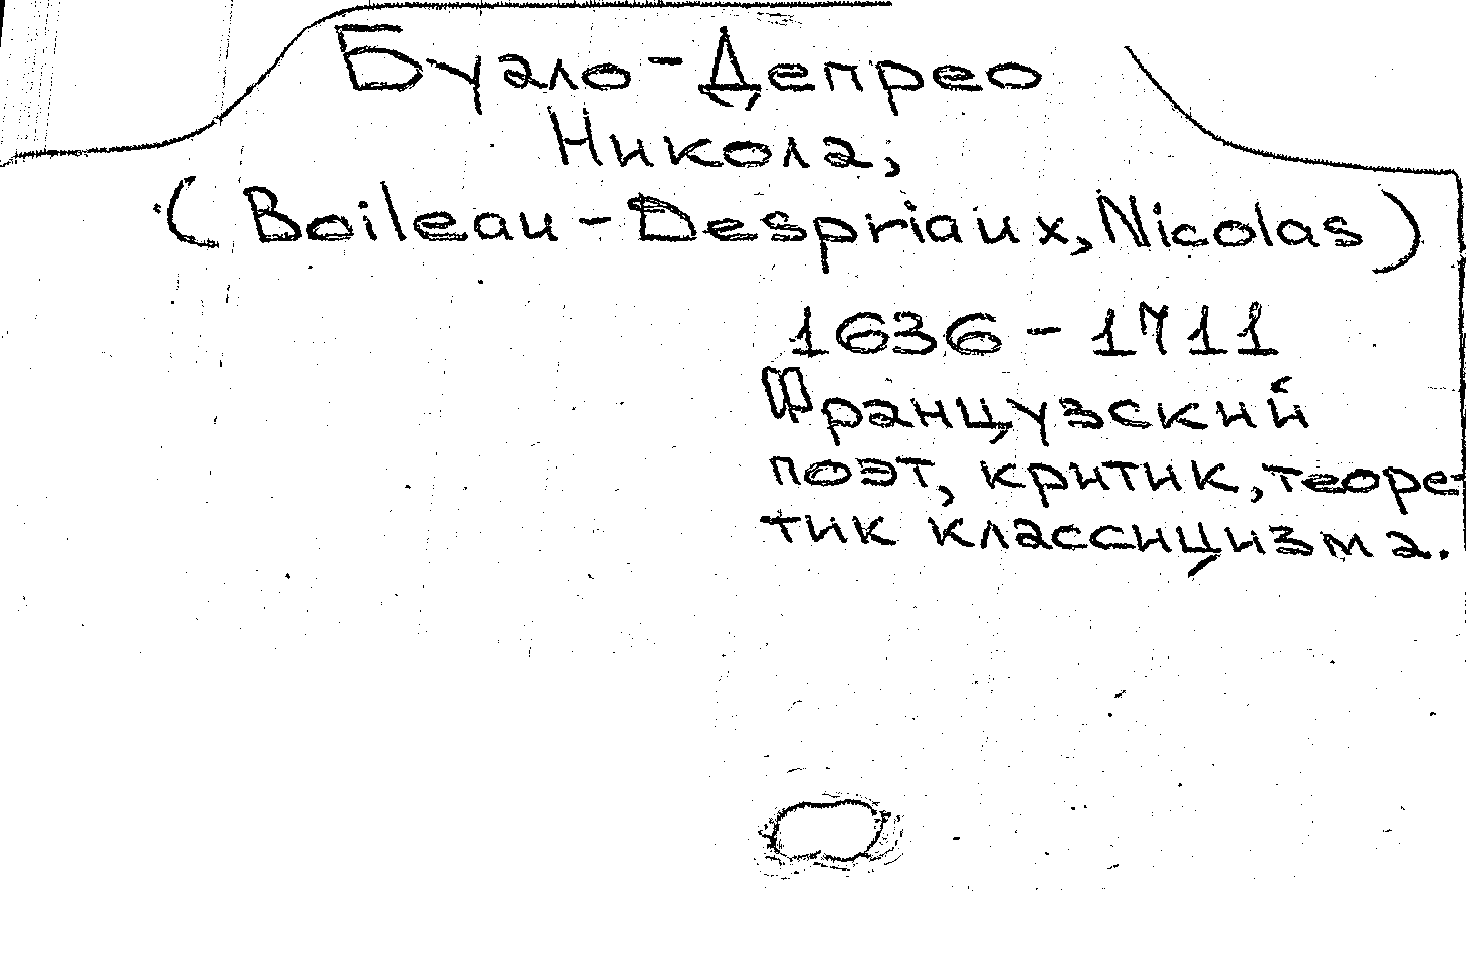 Буало-Депрео
Никола,
(Boileau-Despriaux, Nicolas)
1636-1711
Французский
поэт, критик, теоре-
тик классицизма.